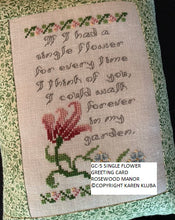 If I had a
single flower
for every time
I think of you,
I could walk
forever
in my
garden.
GC-5 SINGLE FLOWER
GREETING CARD
ROSEWOOD MANOR
©COPYRIGHT KAREN KLUBA